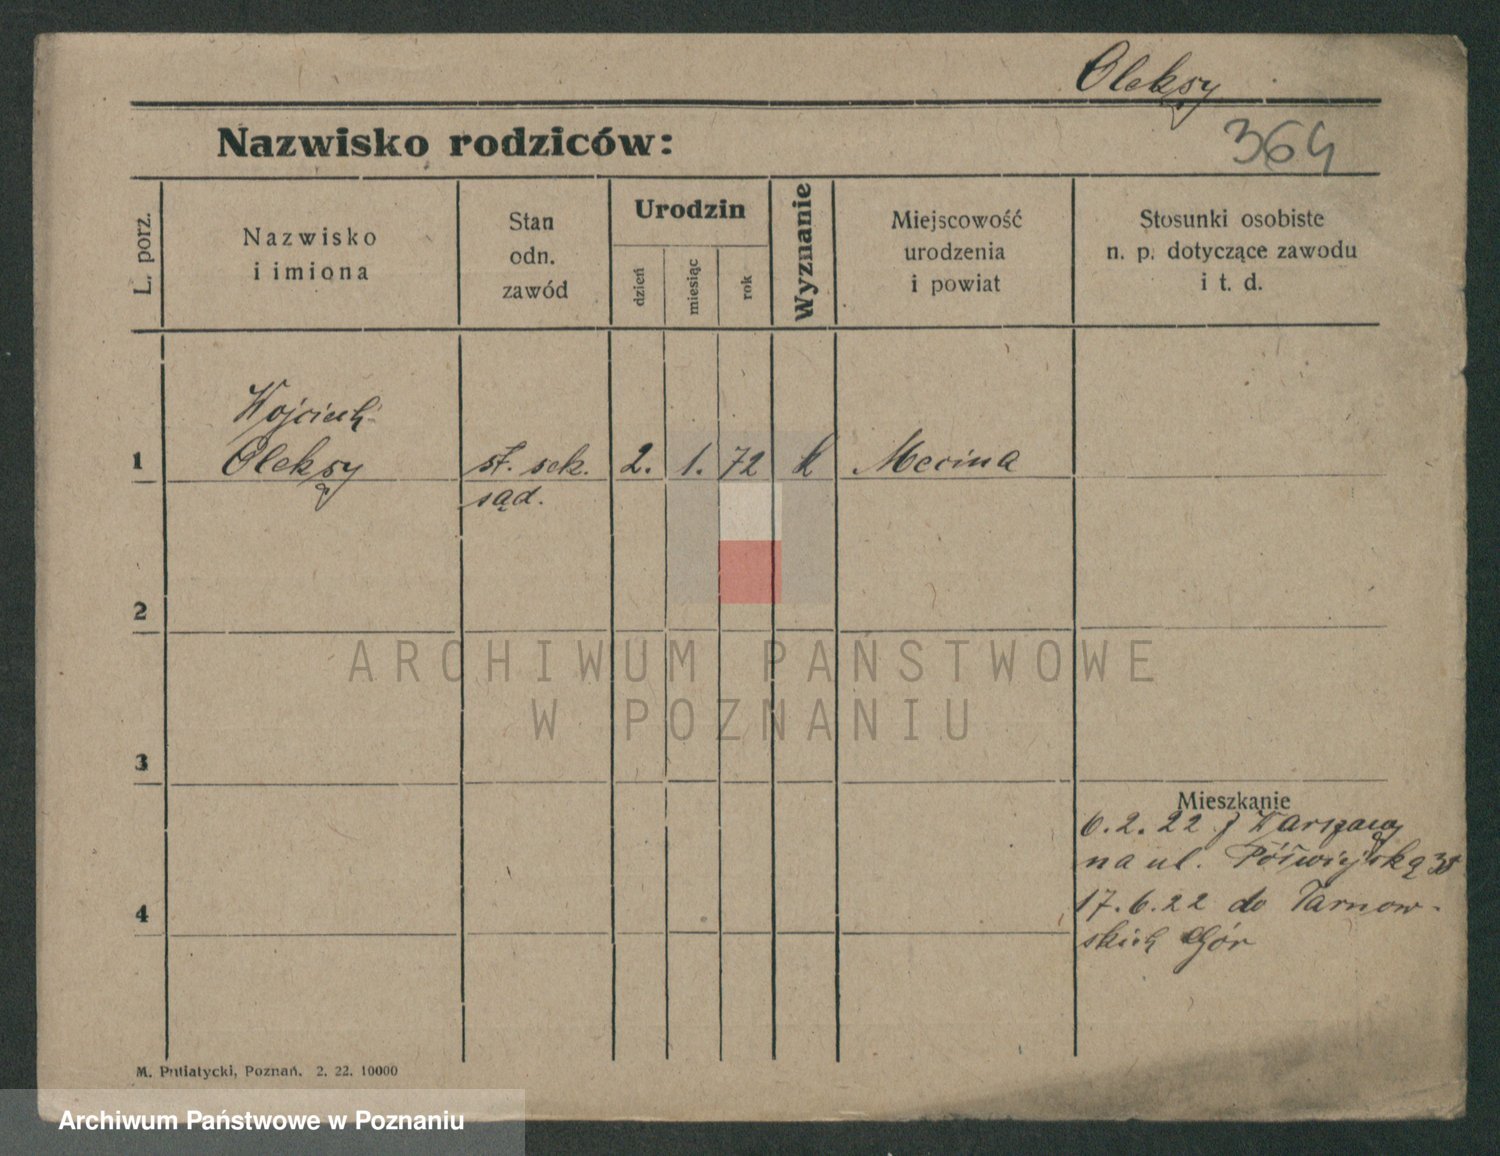 Oleksy
364
Nazwisko rodziców:
L. porz.
Nazwisko
i imiona
Stan
odn.
zawód
Urodzin
dzień
miesiąc
rok
Wyznanie
Miejscowość
urodzenia
i powiat
Stosunki osobiste
n. p. dotyczące zawodu
i t. d.
Wojciech
1 Oleksy st. sek. 2. 1. 72 k Mecina
sąd.
2
ARCHIWUM PAŃSTWOWE
W POZNANIU
3
Mieszkanie
6.2.22 z Warszawy
na ul. Półwiejską 38
4 17.6.22 do Tarnow-
skich Gór
M. Putiatycki, Poznań. 2. 22. 10000
Archiwum Państwowe w Poznaniu